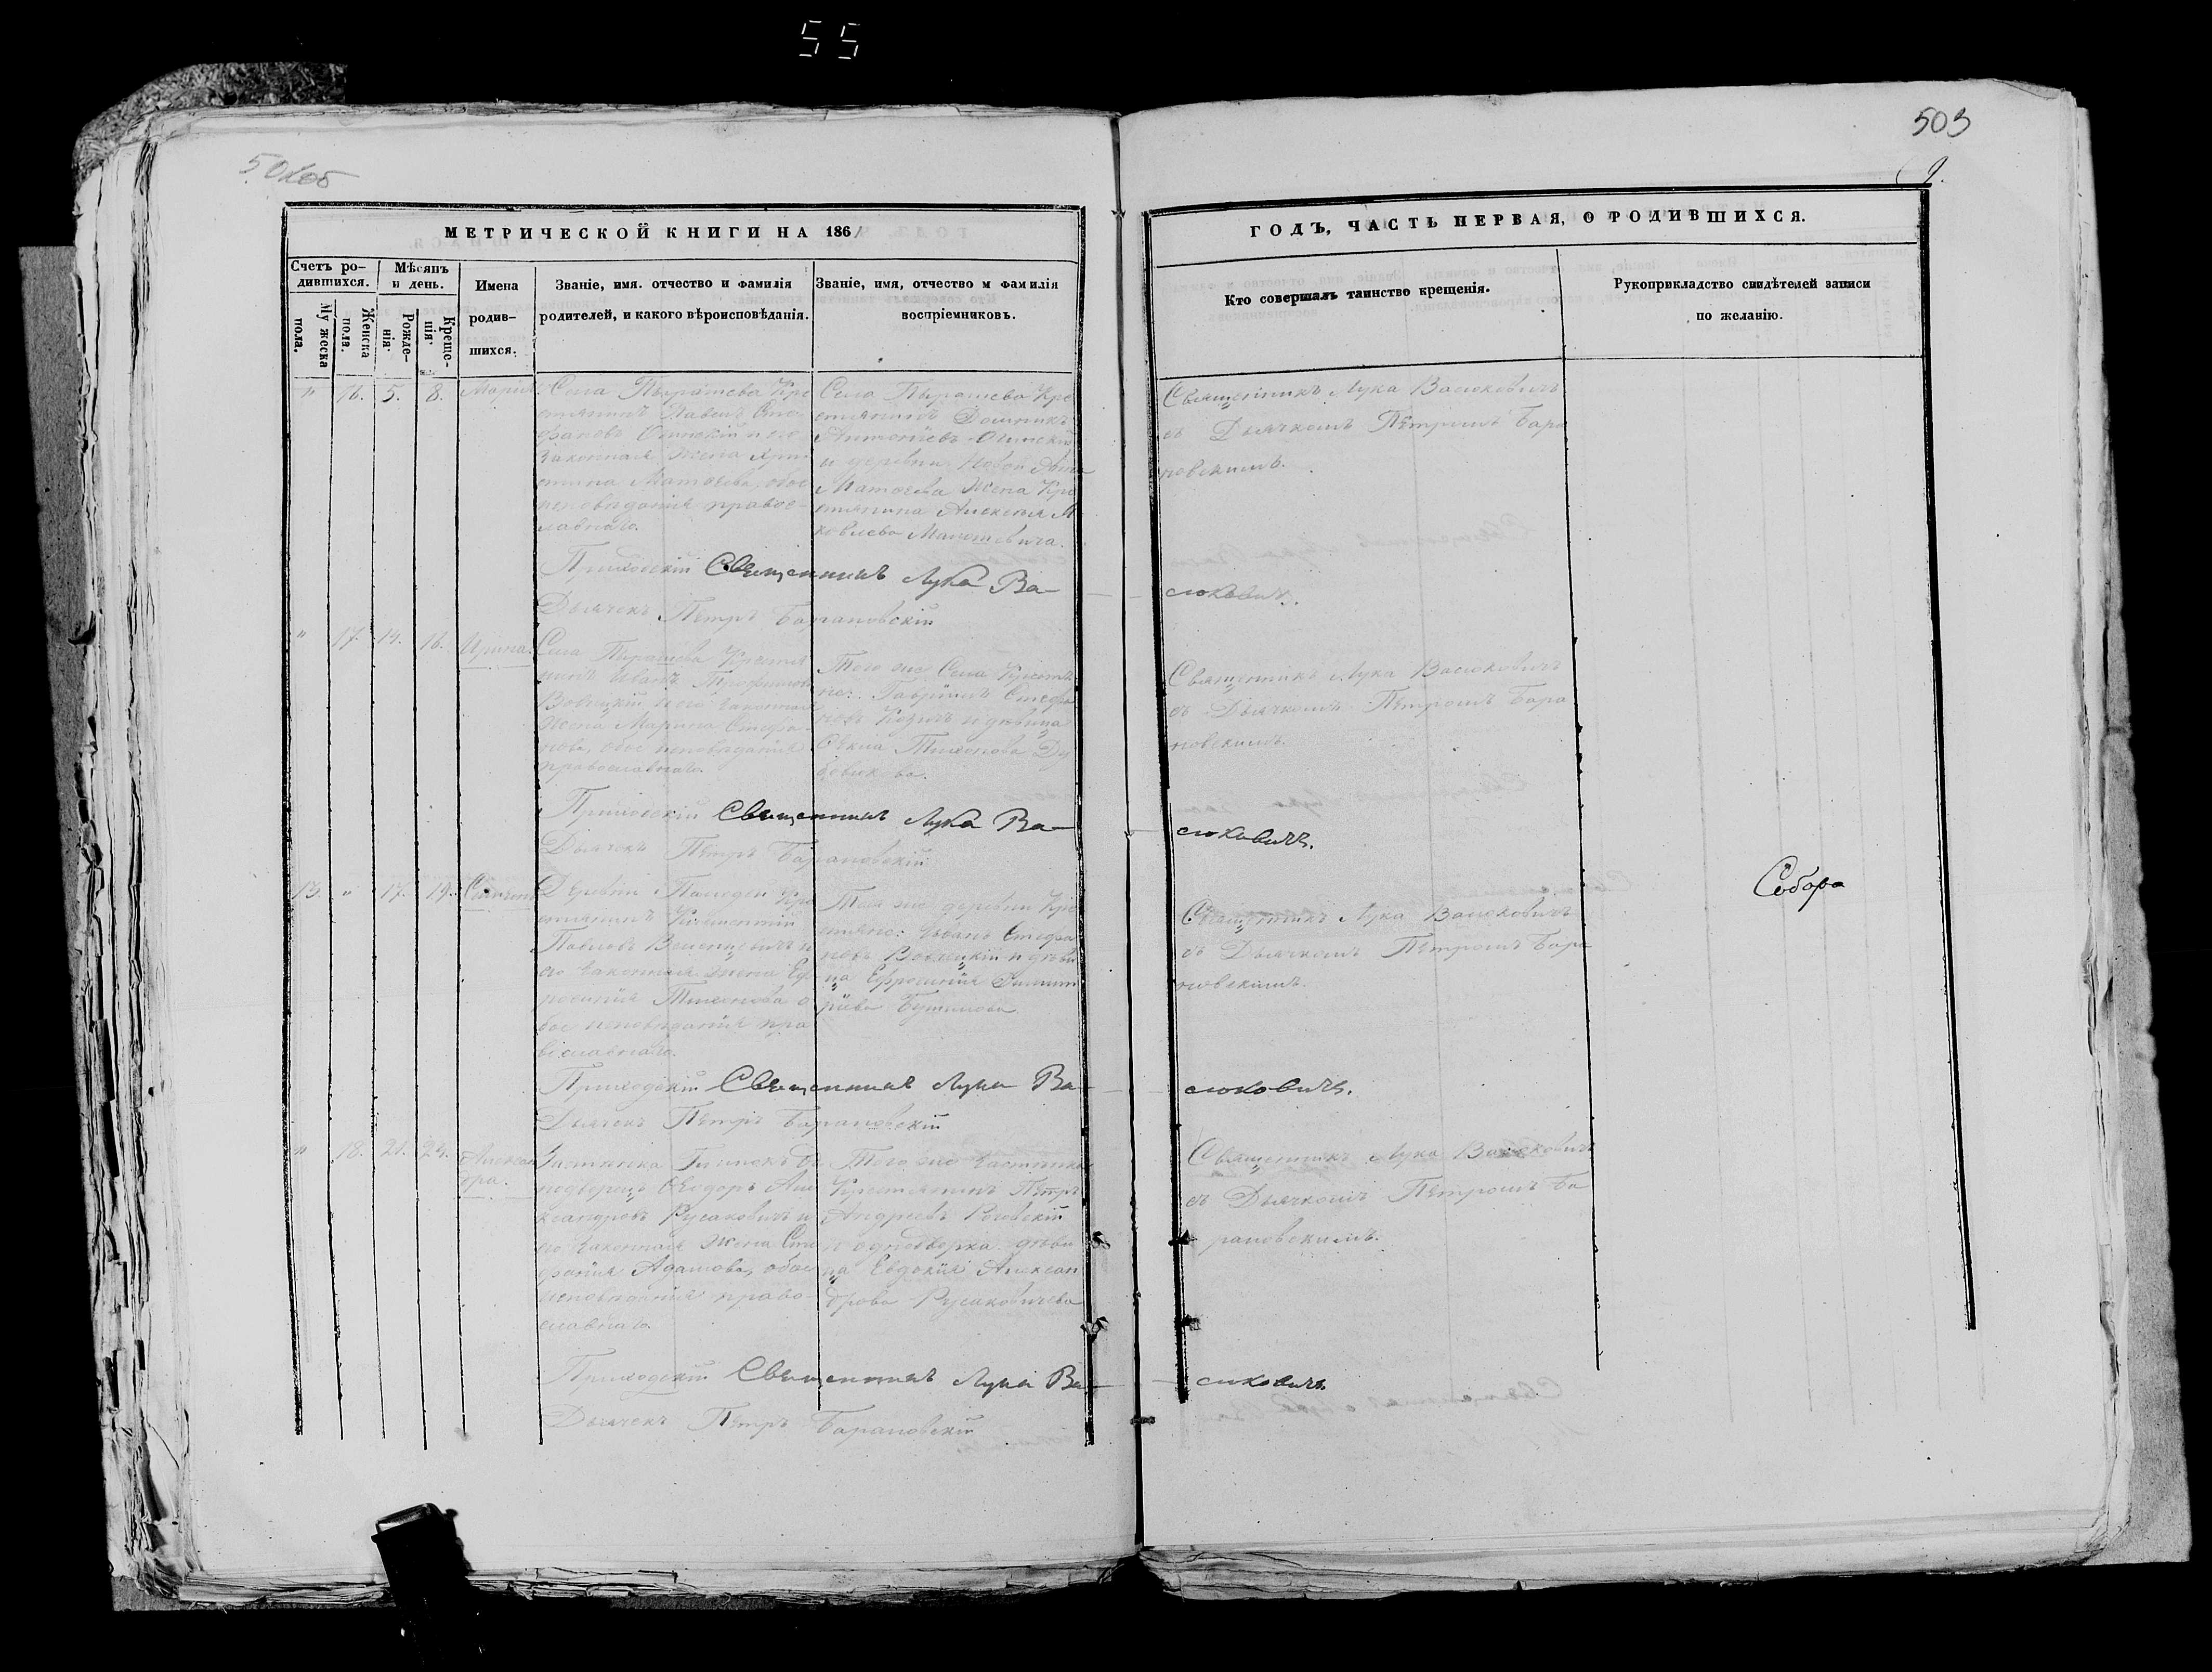 55
503
9.
МЕТРИЧЕСКОЙ КНИГИ НА 1861
ГОДЪ, ЧАСТЬ ПЕРВАЯ, О РОДИВШИХСЯ.
Счетъ ро-
дившихся.
Мужеска
пола.
Женска
пола.
Мѣсяцъ
и день.
Рожде-
нія.
Креще-
нія.
Имена
родив-
шихся.
Званіе, имя. отчество и фамилія
родителей, и какого вѣроисповѣданія.
Званіе, имя, отчество и фамилія
воспріемниковъ.
Кто совершалъ таинство крещенія.
Рукоприкладство свидѣтелей записи
по желанію.
" 16. 5. 8. Марія
Села Пырашева Кре
стьянинъ Павелъ Сте-
фановъ и его
законная жена
Матѳеева, обое
исповѣданія правос-
лавнаго.
Села Пырашева Кре
стьянинъ Доминикъ
и деревни Новой
Матѳеева жена Кре
стьянина Алексѣя Я
ковлева
Священникъ Лука Васюковичъ
съ Дьячкомъ Петромъ Бара
новскимъ.
Приходскій Священникъ Лука Ва-
сюковичъ.
Дьячекъ Петръ Барановскій
" 17. 14. 16. Ирина.
Села Пырашева Крестья
нинъ Иванъ Трофимовъ
и его законная
жена Марина Стефа-
нова, обое исповѣданія
православнаго.
Того же Села Крестья
не: Гавріилъ Стефа
новъ и дѣвица
Ѳекла Тихонова
Священникъ Лука Васюковичъ
съ Дьячкомъ Петромъ Бара
новскимъ.
Приходскій Священникъ Лука Ва-
сюковичъ.
Дьячекъ Петръ Барановскій
13. " 17. 19.
Деревни Кре
стьянинъ Климентій
Павловъ и
его законная жена Еф
росинія Тихонова о
бое исповѣданія пра
вославнаго.
Той же деревни Кре
стьяне: Иванъ Стефа
новъ и дѣви
ца Ефросинія
Священникъ Лука Васюковичъ
съ Дьячкомъ Петромъ Бара
новскимъ.
Собора
Приходскій Священникъ Лука Ва-
сюковичъ.
Дьячекъ Петръ Барановскій
" 18. 21. 24. Алексан
дра.
Застѣнка Од
нодворецъ Ѳеодоръ Але
ксандровъ Русаковичъ и
его законная жена Сте
фанія Адамова, обое
исповѣданія право-
славнаго.
Того же Застѣнка
Крестьянинъ Петръ
Андреевъ
и однодворка дѣви
ца Евдокія Алексан
дрова Русаковичева
Священникъ Лука Васюковичъ
съ Дьячкомъ Петромъ Ба
рановскимъ.
Приходскій Священникъ Лука Ва-
сюковичъ.
Дьячекъ Петръ Барановскій